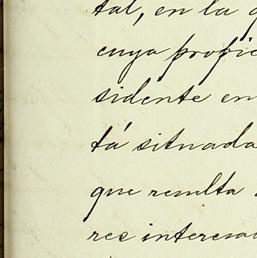 tal, en la
cuya propie
sidente en
tá situada
que resulta
res interesa